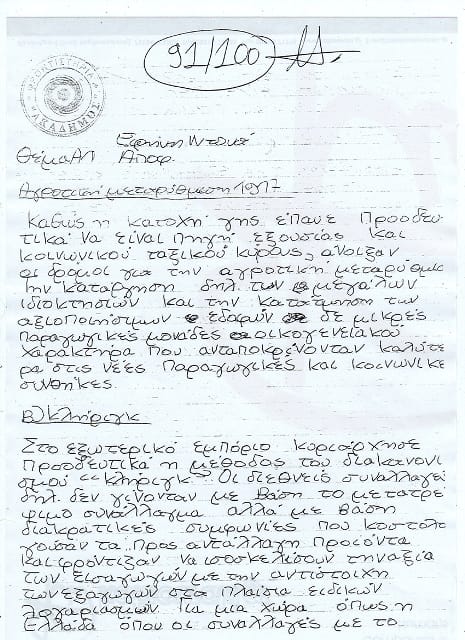 91/100
ΦΡΟΝΤΙΣΤΗΡΙΑ
ΑΚΑΔΗΜΟΣ
Ειρήνη
Θέμα Α1 Αποφ.
Αγροτική μεταρύθμιση 1917
Καθώς η κατοχή γης έπαυε Προοδευ
τικά να είναι πηγή εξουσίας και
κοινωνικού ταξικού κύρους, άνοιξαν
οι δρόμοι για την αγροτική μεταρύθμισ
την κατάργηση δηλ. των μεγάλων
ιδιοκτησιών και την κατάτμηση των
αξιοποιήσιμων εδαφών σε μικρές
παραγωγικές μονάδες οικογενειακού
χαρακτήρα που ανταποκρίνονταν καλύτε
ρα στις νέες παραγωγικές και κοινωνικέ
συνθήκες.
Β) Κλήριγκ
Στο εξωτερικό εμπόριο κυριάρχησε
Προοδευτικά η μέθοδος του διακανονι
σμού "κλήριγκ". Οι διεθνείς συναλλαγέ
δηλ. δεν γίνονταν με βάση το μετατρέ
ψιμο συνάλλαγμα αλλά με βάση
διακρατικές συμφωνίες που κοστολο
γούσαν τα προς ανταλλαγή προιόντα
και φρόντιζαν να ισοσκελίσουν την αξία
των εισαγωγών με την αντίστοιχη
των εξαγωγών στα πλαίσια ειδικών
λογαριασμών. Για μια χώρα όπως η
Ελλάδα όπου οι συναλλαγές με το